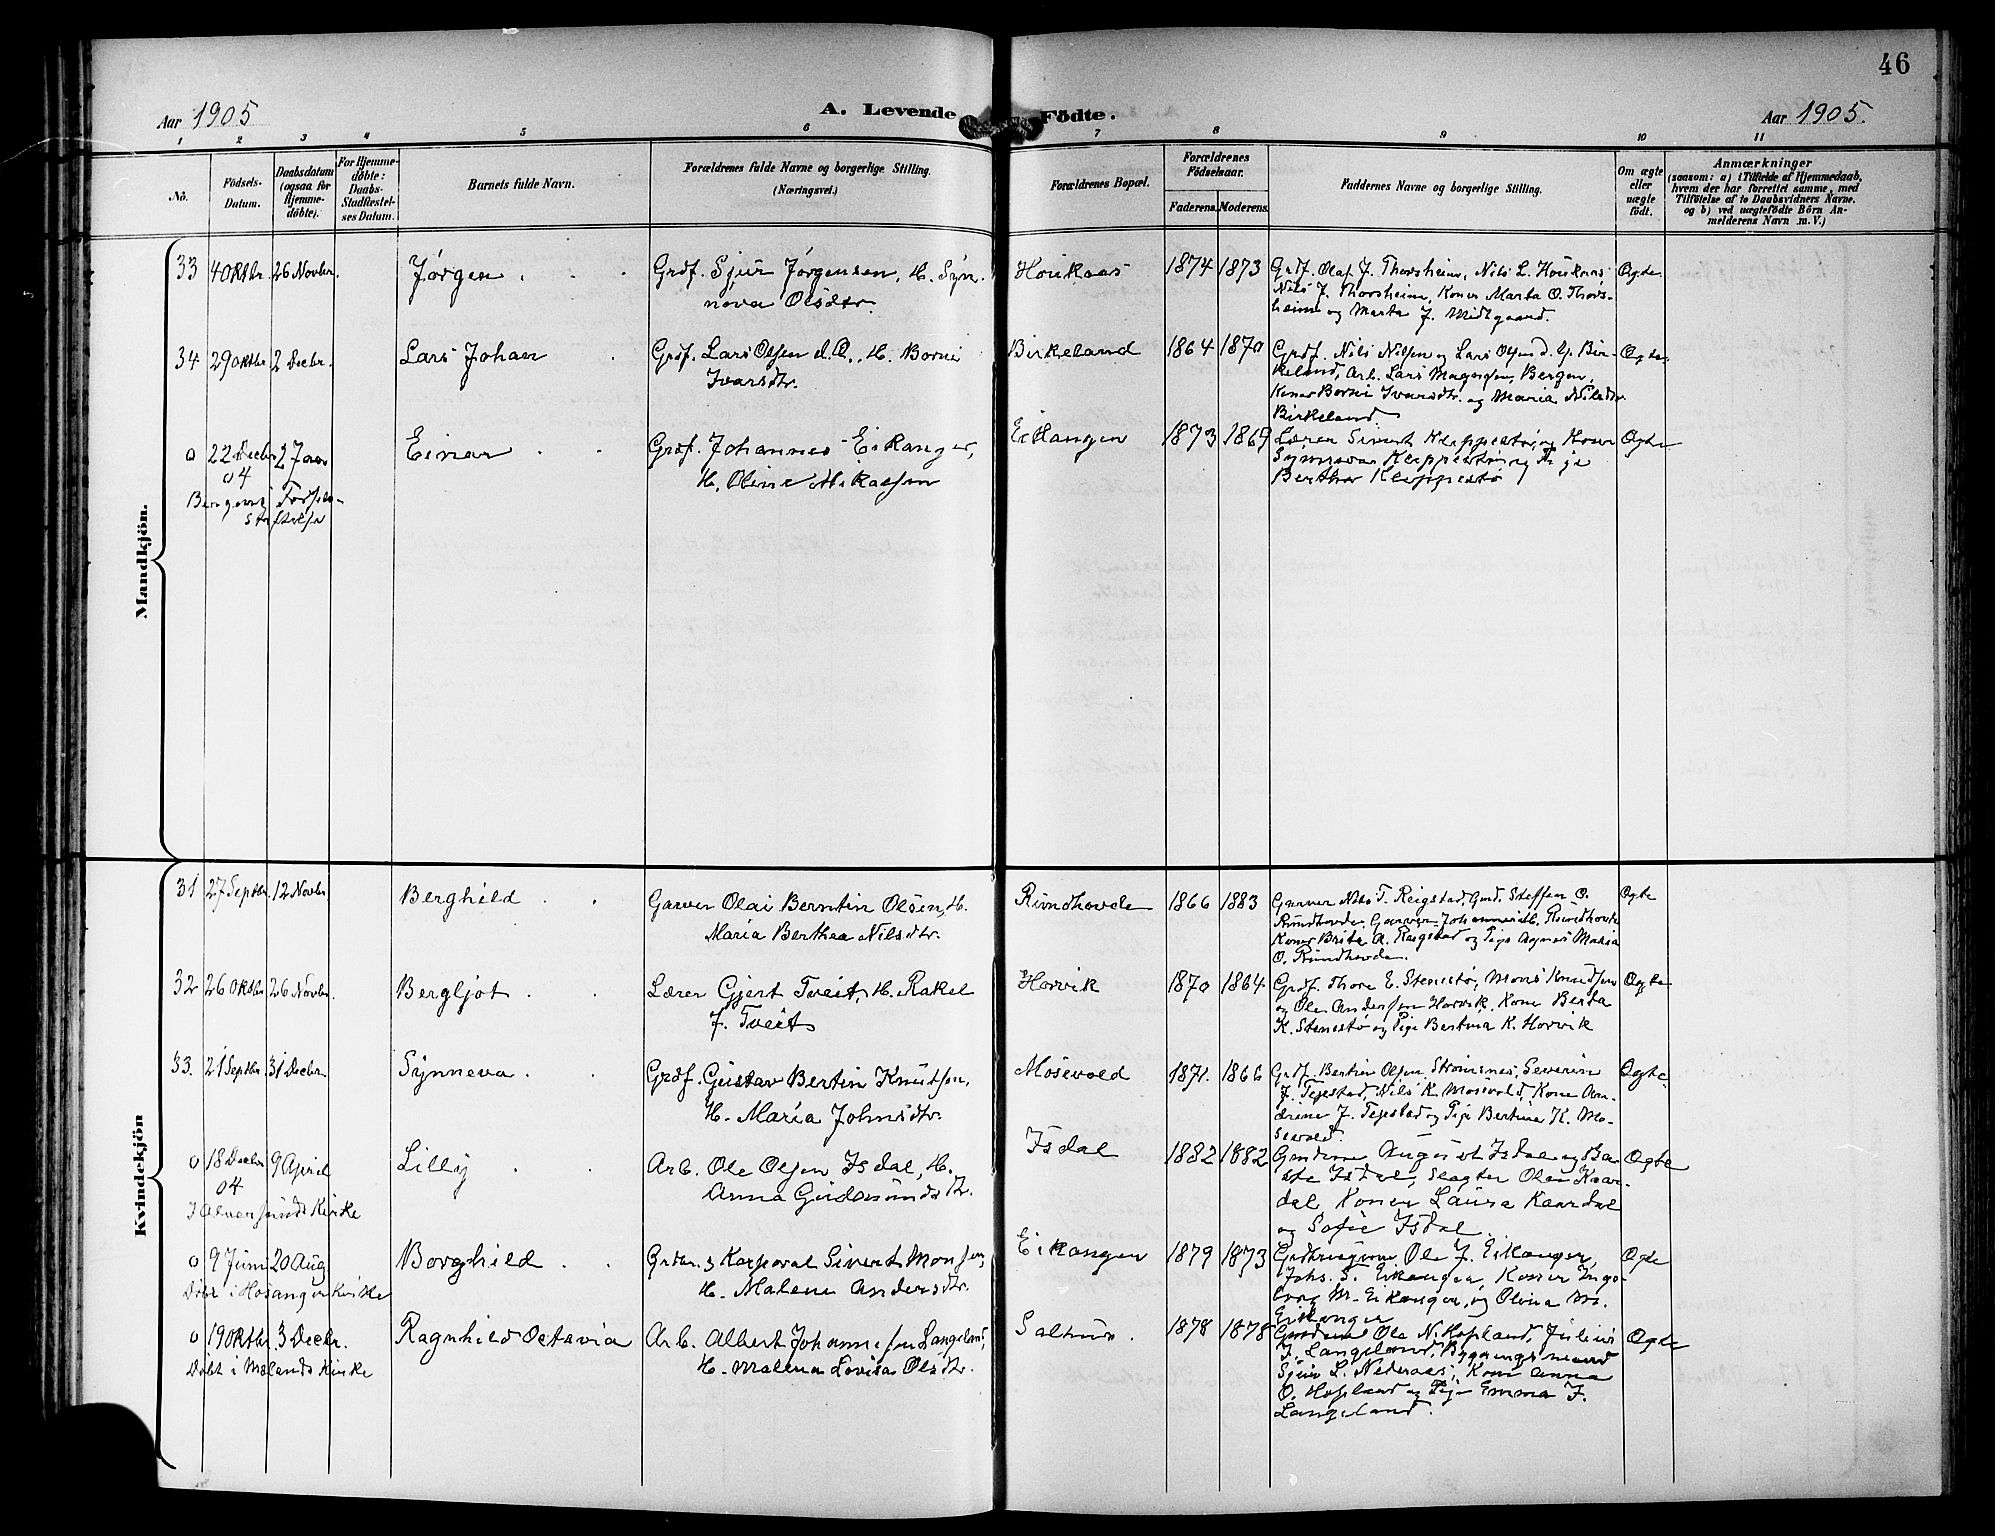 46
Aar 1905
A. Levende Födte.
Aar 1905.
1 2 3 4 5 6 7 8 9 10 11
No. Födsels-Datum. Daabsdatum (ogsaa for Hjemme-döbte). For Hjemme-döbte: Daabs-Stadfæstel-ses Datum. Barnets fulde Navn. Forældrenes fulde Navne og borgerlige Stilling. (Næringsvei.) Forældrenes Bopæl. Forældrenes Födselsaar. Faderens. Moderens. Faddernes Navne og borgerlige Stilling. Om ægte eller uægte födt. Anmærkninger
(saasom: a) i Tilfælde af Hjemmedaab,
hvem der har forrettet samme, med
Tilföielse af to Daabsvidners Navne.
og b) ved uægtefödte Börn An-
melderens Navn m. V.)
Mandkjön.
33 4 Oktbr. 26 Novbr. Jørgen Grdf. Sjur Jørgensen, H. Syn- Houkaas 1874 1873 Grdf. Olaf J. Thorsheim, Nils L. Houkaas Ægte
nøva Olsdtr. Nils J. Thorsheim, Koner Marta O. Thors-
heim og Marta J. Midtgaard.
34 29 Oktbr. 2 Decbr. Lars Johan Grdf. Lars Olsen d. H. Borni Birkeland 1864 1870 Grdf. Nils Nilsen og Lars Olsen d. y. Bir- Ægte
Ivarsdtr. keland, Arb. Lars Magnesen, Bergen,
Koner Borni Ivarsdtr. og Maria Nilsdtr.
Birkeland.
0 22 Decbr. 2 Johannes Eikanger, Eikanger 1873 1869 Lærer Sivert Kleppestø og Kone Ægte
04 Einar Grdf. H. Oline Mikalsen Synneva Kleppestø og Pige
Berthe Kleppestø
Bergens Fødsels-
stiftelse
Kvindekjön
31 27 Septbr. 12 Novbr. Berghild Garver Olai Berntin Olsen, H. Rundhovde 1866 1883 Garver Nils T. Reigstad, Gmd. Steffen O. Ægte
Maria Berthea Nilsdtr. Rundhovde, Garver Johannes M. Rundhovde
Koner Brita A. Reigstad og Pige Agnes Maria
O. Rundhovde.
32 26 Oktbr. 26 Novbr. Bergljot Lærer Gjert Tveit, H. Rakel Horvik 1870 1864 Grdf. Thore E. Stenestø, Mons Knudsen Ægte
J. Tveit og Ole Andersen Horvik, Kone Berta
K. Stenestø og Pige Bertina K. Horvik
33. 21 Septbr. 31 Decbr. Synneva Grdf. Gustav Bertin Knutsen, Mosevold 1871. 1866 Grdf. Bertin Olsen Strømsnes, Severin Ægte
H. Maria Johnsdtr. J. Tejestad, Nils K. Mosevold, Kone An-
drine J. Tejestad og Pige Bertina K. Mo-
sevold.
0 18 Decbr. 9 April Lilly Arb. Ole Olsen Isdal, H. Isdal 1882 1882 August Isdal og Ba- Ægte
04 Anna Gudmundsdtr. Isdal, Slagter Olai Kaar-
I Alversunds Kirke dal, Koner Laura Kaardal
og Sofie Isdal.
0 9 Juni 20 Aug Borghild Korporal Sivert Monsen, Eikanger 1879 1873 Ole J. Eikanger, Ægte
Døbt i Hosanger Kirke H. Malene Andersdtr. Johs. S. Eikanger, Koner Inge-
borg M. Eikanger, og Olina M.
Eikanger
0 19 Oktbr. 3 Decbr. Ragnhild Octavia Arb. Albert Johannesen Langeland, Salhus. 1878 1878 Ole N. Hopland, Julius Ægte
Døbt i Mælands Kirke H. Malena Lovisa Olsdtr. J. Langeland, Bygningsmand
Sjur L. Nederaas, Kone Anna
O. Hopland og Pige Emma J.
Langeland.